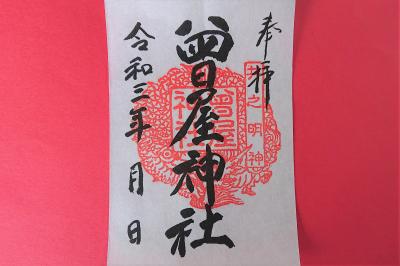 奉拝
曽屋神社
令和三年 月 日
井之明神
曽屋神社